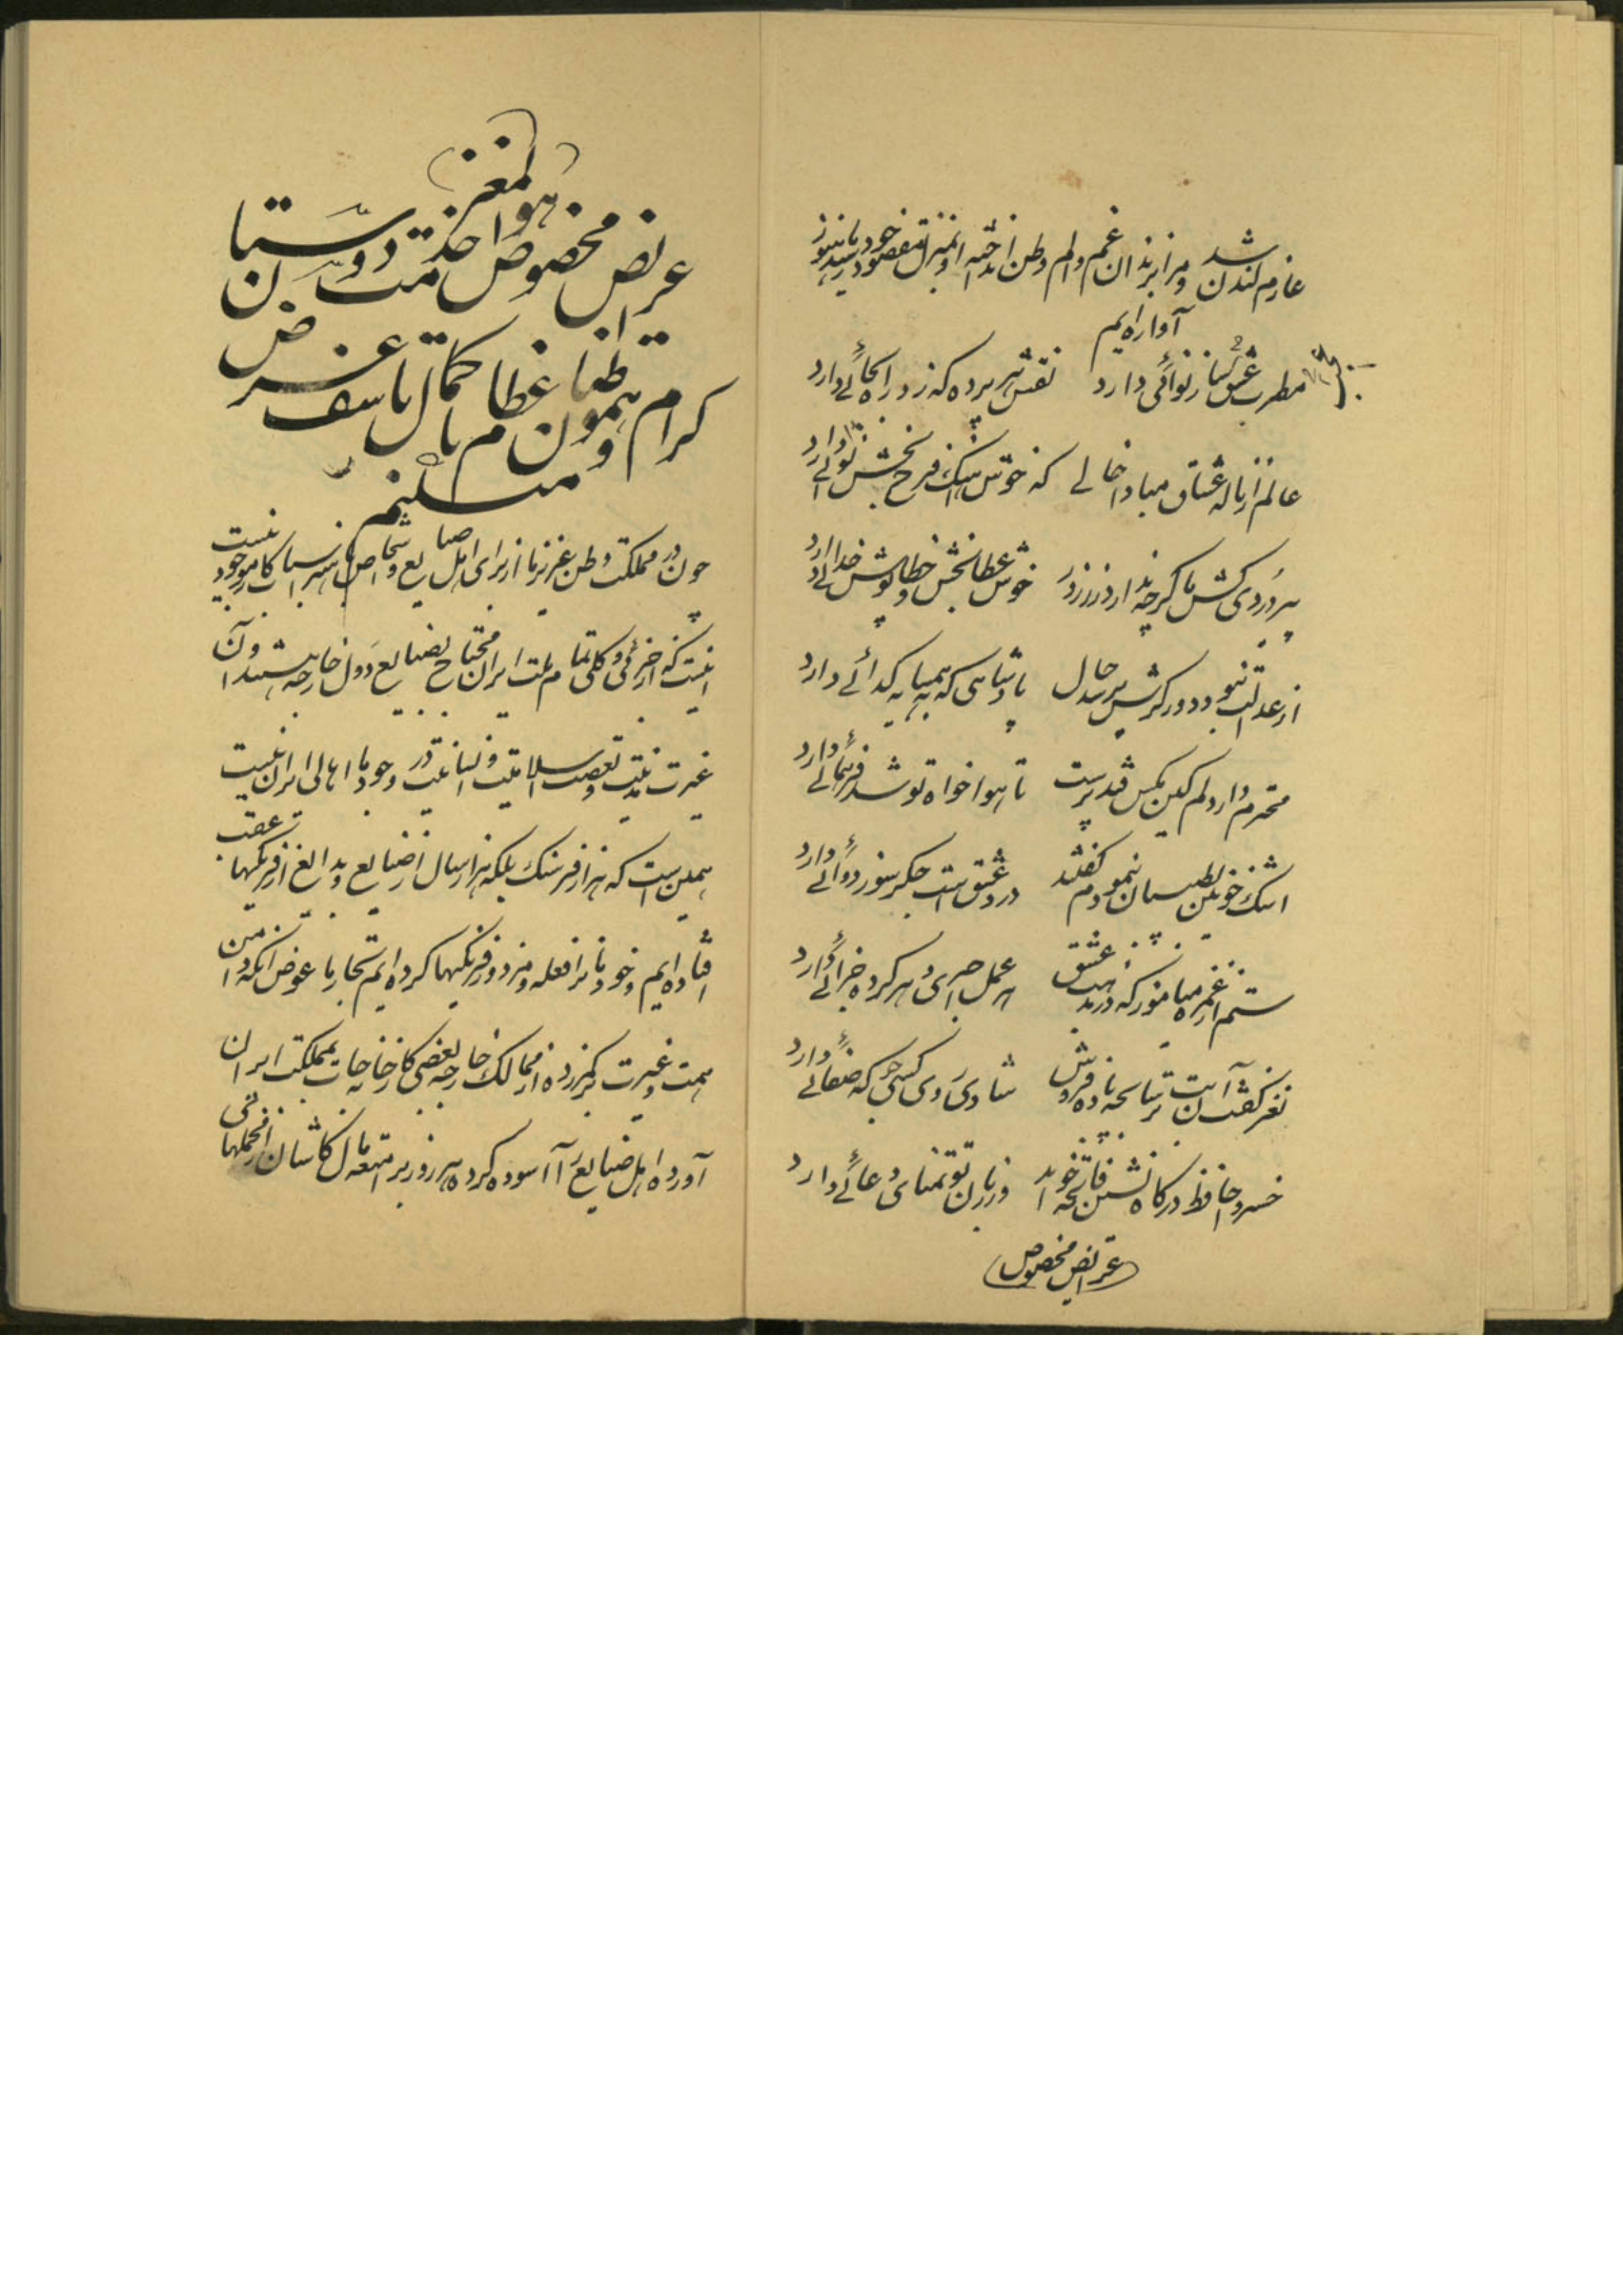 عازم لندن شد و مرا بزندان غم و الم وطن انداخته او بمنزل مقصود خود رسید ما هنوز
آواره ایم
مطرب عشق عجب ساز نوائی دارد نقش هر پرده که زد راه بجائی دارد
عالم از ناله عشاق مبادا خالی که خوش آهنگ فرح بخش نوائی دارد
پیر دردی کش ما گرچه ندارد زر و زور خوش عطا بخش و خطا پوش خدائی دارد
از عدالت نبود دور گرش پرسد حال پادشاهی که به همسایه گدائی دارد
محترم دار دلم کین مگس قند پرست تا هوا خواه تو شد فر همائی دارد
اشک خونین بطبیبان بنمودم گفتند درد عشق است جگر سوز دوائی دارد
ستم از غمزه میاموز که در مذهب عشق هر عمل اجری و هر کرده جزائی دارد
نغز گفت آن بت ترسا بچه باده فروش شادی روی کسی جو که صفائی دارد
خسروا حافظ درگاه نشین فاتحه خواند وز زبان تو تمنای دعائی دارد
عرایض مخصوص
هو
عرایض مخصوص خدمت دوستان
کرام و هموطنان عظام با کمال تاسف عرض
مینمایم
چون در مملکت وطن عزیز ما از برای اهل صنایع و اشخاص با هنر اسباب کار موجود نیست
اینست که از جزئی و کلی تمام ملت ایران محتاج بصنایع دول خارجه هستند و آن
غیرت ملیت و تعصب اسلامیت و انسانیت در وجود ما اهالی ایران نیست
همین است که هزار فرسنگ بلکه هزار سال از صنایع و بدایع از فرنگیها عقب
افتاده ایم و خودمان را فعله و مزدور فرنگیها کرده ایم تجار ما عوض آنکه دامن
همت و غیرت بکمر زده از ممالک خارجه بعضی کارخانجات بمملکت ایران
آورده اهل صنایع را آسوده کرده هر روز بر امتعه مال کاشان